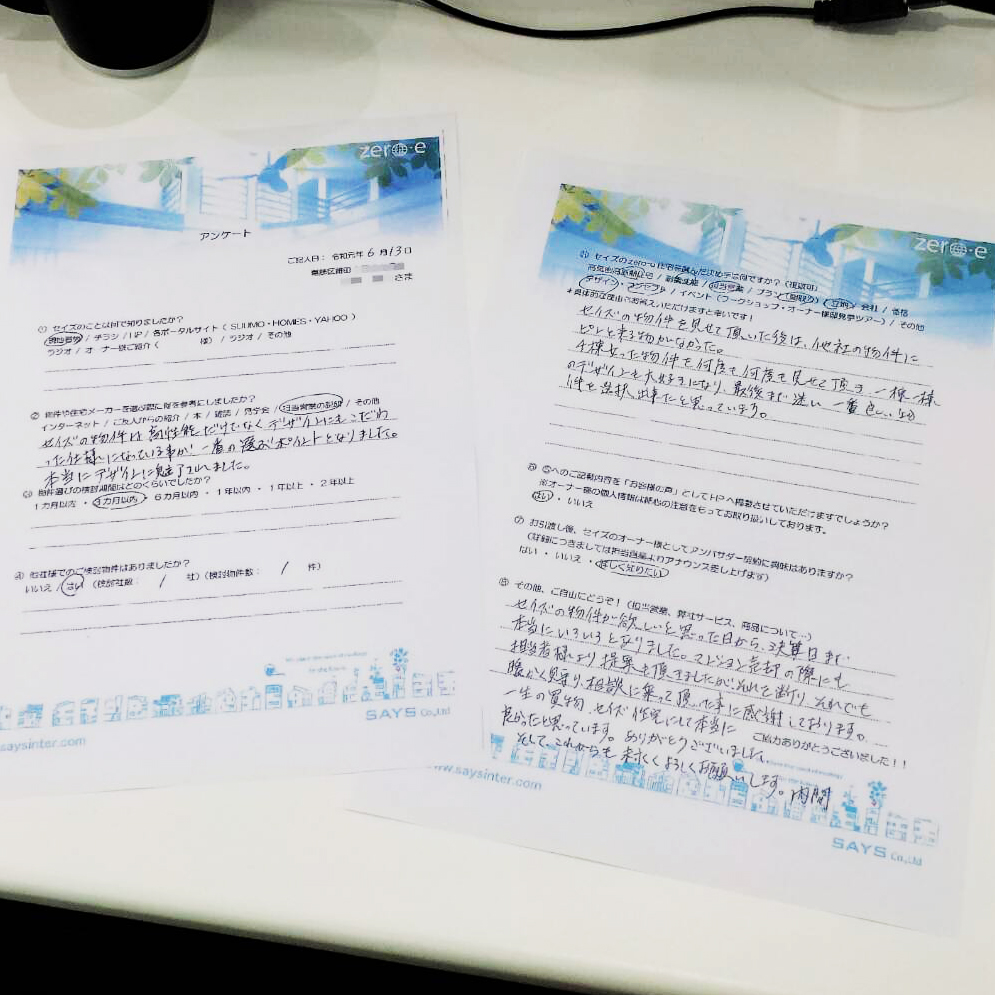 zero-e
アンケート
ご記入日: 令和元年6月13日
さま
① セイズのことは何で知りましたか?
担当営業 / チラシ / HP / 各ポータルサイト ( SUUMO・HOMES・YAHOO )
ラジオ / オーナー様ご紹介 ( 様) / ラジオ / その他
② 物件や住宅メーカーを選ぶ際に何を参考にしましたか?
インターネット / ご友人からの紹介 / 本 / 雑誌 / 見学会 / 担当営業の説明 / その他
セイズの物件は高性能だけでなくデザインにもこだわ
った仕様になっている事が、一番の選ぶポイントとなりました。
本当にデザインに魅了されました。
③ 物件選びの検討期間はどのくらいでしたか?
1カ月以内 ・ 3カ月以内 ・ 6カ月以内 ・ 1年以内 ・ 1年以上 ・ 2年以上
④ 他社様でのご検討物件はありましたか?
いいえ / はい (検討社数: / 社) (検討物件数: / 件)
SAYS Co.,Ltd
saysinter.com
zero-e
⑤ セイズのzero-e住宅を選んだ決め手は何ですか? (複数可)
高気密高断熱住宅 / 耐震性能 / 担当営業 / プラン (間取り) / 立地 / 会社 / 価格
デザイン・コンセプト / イベント (ワークショップ・オーナー様邸見学ツアー) / その他
*具体的な理由でお答えいただけますと幸いです!
セイズの物件を見せて頂いた後は、他社の物件に
ピンと来る物がなかった。
4棟あった物件を何度も何度も見せて頂き、一棟一棟
のデザインも大好きになり、最後まで迷い、一番良い物
件を選択出来たと思っています。
⑥ ⑤へのご記載内容を「お客様の声」としてHPへ掲載させていただけますでしょうか?
※オーナー様の個人情報は細心の注意をもってお取り扱いしております。
はい ・ いいえ
⑦ お引渡し後、セイズのオーナー様としてアンバサダー契約に興味はありますか?
(詳細につきましては担当営業よりアナウンス差し上げます)
はい ・ いいえ ・ 詳しく知りたい
⑧ その他、ご自由にどうぞ! (担当営業、弊社サービス、商品について…)
セイズの物件が欲しいと思った日から、決算日まで
本当にいろいろとありました。マンション売却の際にも
担当者様より提案も頂きましたが、それを断り、それでも
暖かく見守り、相談に乗って頂いた事に感謝しております。
一生の買物、セイズ住宅にして本当に
良かったと思っています。ありがとうございました。
ご協力ありがとうございました!!
そして、これからも末永くよろしくお願いします。
SAYS Co.,Ltd
www.saysinter.com